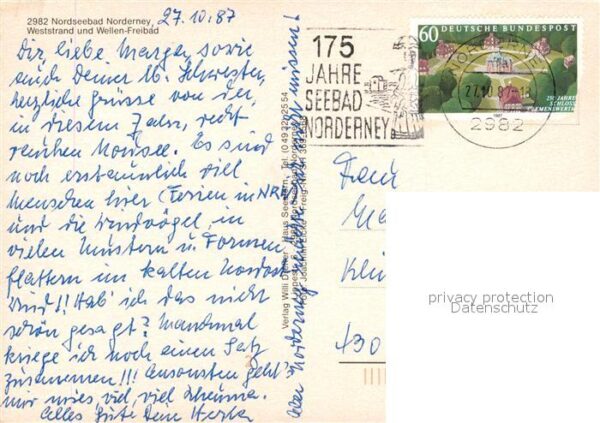 2982 Nordseebad Norderney
Weststrand und Wellen-Freibad
27.10.87
Dir liebe Margar, sowie
auch Deiner lb. Schwester,
herzliche Grüsse von der,
in diesem Jahr, recht
rauhen Nordsee. Es sind
noch erstaunlich viel
Menschen hier (Ferien in NRW)
und die Windvögel in
vielen Mustern u. Formen
flattern im kalten Nordost
Wind!! Hab' ich das nicht
schön gesagt? Manchmal
kriege ich noch einen Satz
zusammen!!! Ansonsten geht's
mir mies, viel, viel Rheuma.
Alles Gute Dein
Wer Norderney müssen!
Verlag Willi Haus Tel. (04932) 2554
175
JAHRE
SEEBAD
NORDERNEY
60 DEUTSCHE BUNDESPOST
250 JAHRE
SCHLOSS
CLEMENSWERTH
1987
NORDERNEY
27.10.87
2982
430
privacy protection
Datenschutz